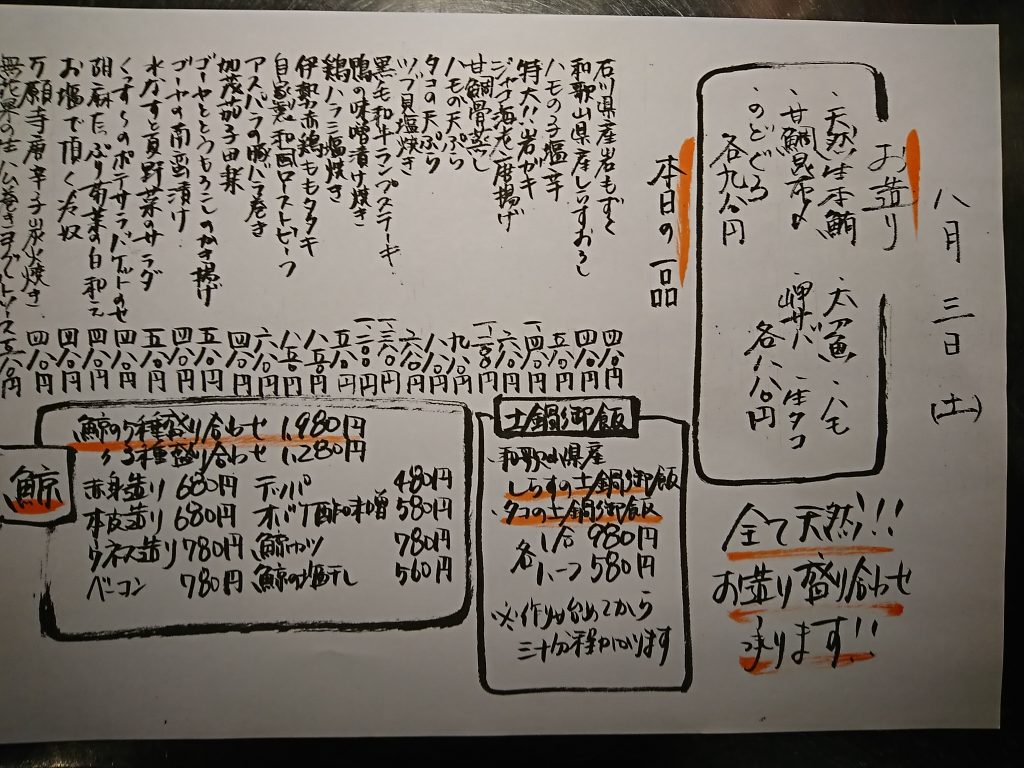 八月三日(土)
お造り
・天然生本鮪
・太刀魚
・ハモ
・甘鯛昆布〆
・岬サバ
・生タコ
・のどぐろ
各八八〇円
各九八〇円
全て天然!!
お造り盛り合わせ
承ります!!
本日の一品
石川県産岩もずく 四八〇円
和歌山県産しらすおろし 四八〇円
ハモの子塩辛 五八〇円
特大!!岩ガキ
ジャコ海老唐揚げ 六八〇円
甘鯛骨蒸し
ハモの天ぷら 九八〇円
タコの天ぷら 八八〇円
ツブ貝塩焼き 六八〇円
黒毛和牛ランプステーキ
鴨の味噌漬け焼き
鶏ハラミ塩焼き 五八〇円
伊勢赤鶏ももタタキ 八五〇円
自家製和風ローストビーフ 八五〇円
アスパラの豚バラ巻き 六八〇円
加茂茄子田楽 四八〇円
ゴーヤととうもろこしのかき揚げ 五八〇円
ゴーヤの南蛮漬け 四八〇円
水ナスと夏野菜のサラダ 五八〇円
くっすーのポテサラバケットのせ 四八〇円
胡麻たっぷり菊菜の白和え 四八〇円
お塩で頂くたぬ奴 四八〇円
万願寺唐辛子炭火焼き 四八〇円
無花果の生ハム巻きヨーグルトソース 五八〇円
土鍋御飯
・和歌山県産
しらすの土鍋御飯
・タコの土鍋御飯
各 1合 980円
ハーフ 580円
※作り始めてから
三十分程かかります
鯨
鯨の5種盛り合わせ 1,980円
〃3種盛り合わせ 1,280円
赤身造り 680円 テッパ 480円
本皮造り 680円 オバケ酢味噌 580円
ウネス造り 780円 鯨カツ 780円
ベーコン 780円 鯨の塩干し 560円